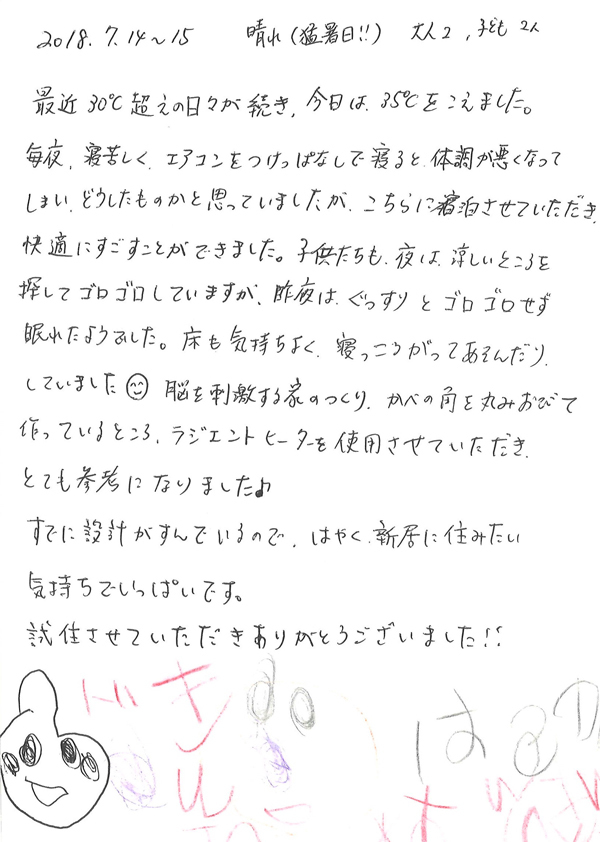 2018.7.14～15 晴れ(猛暑日!!) 大人2，子ども2人
最近30℃超えの日々が続き，今日は，35℃をこえました。
毎夜，寝苦しく，エアコンをつけっぱなしで寝ると，体調が悪くなって
しまい，どうしたものかと思っていましたが，こちらに宿泊させていただき，
快適にすごすことができました。子供たちも，夜は，涼しいところを
探してゴロゴロしていますが，昨夜は，ぐっすりとゴロゴロせず
眠れたようでした。床も気持ちよく，寝っころがってあそんだり，
していました😊 脳を刺激する家のつくり，かべの角を丸みおびて
作っているところ，ラジエントヒーターを使用させていただき，
とても参考になりました♪
すでに設計がすんでいるので，はやく，新居に住みたい
気持ちでいっぱいです。
試住させていただきありがとうございました!!
はるひ